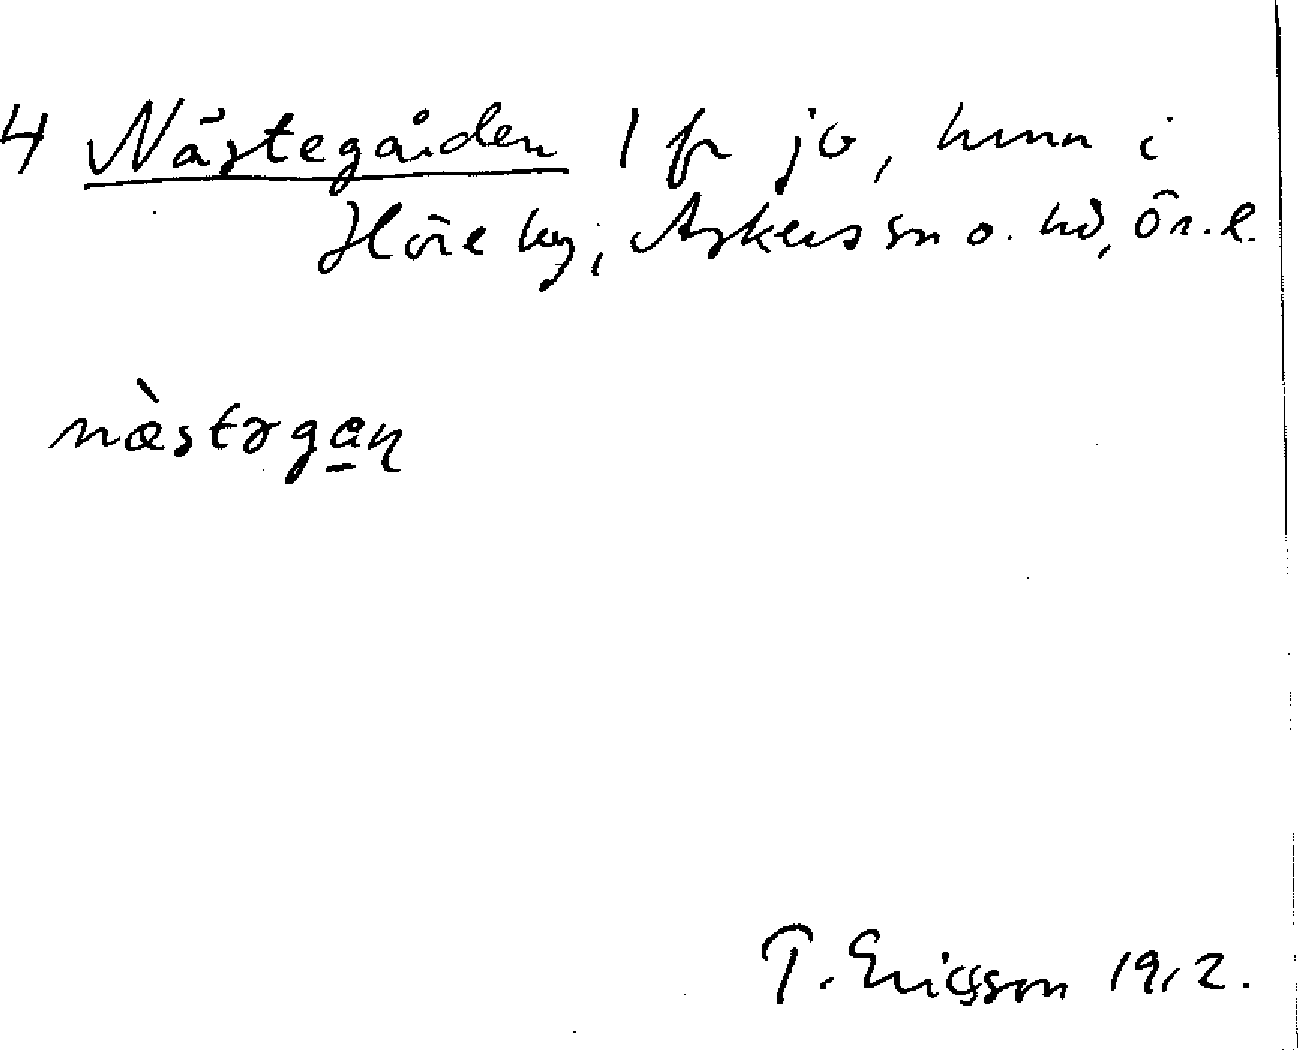 4 Nästegården 1 fr jo, hmn i
Höre by, Askers sn o. hd, Ör. l.
næ̀stəgan
T. Ericsson 1912.